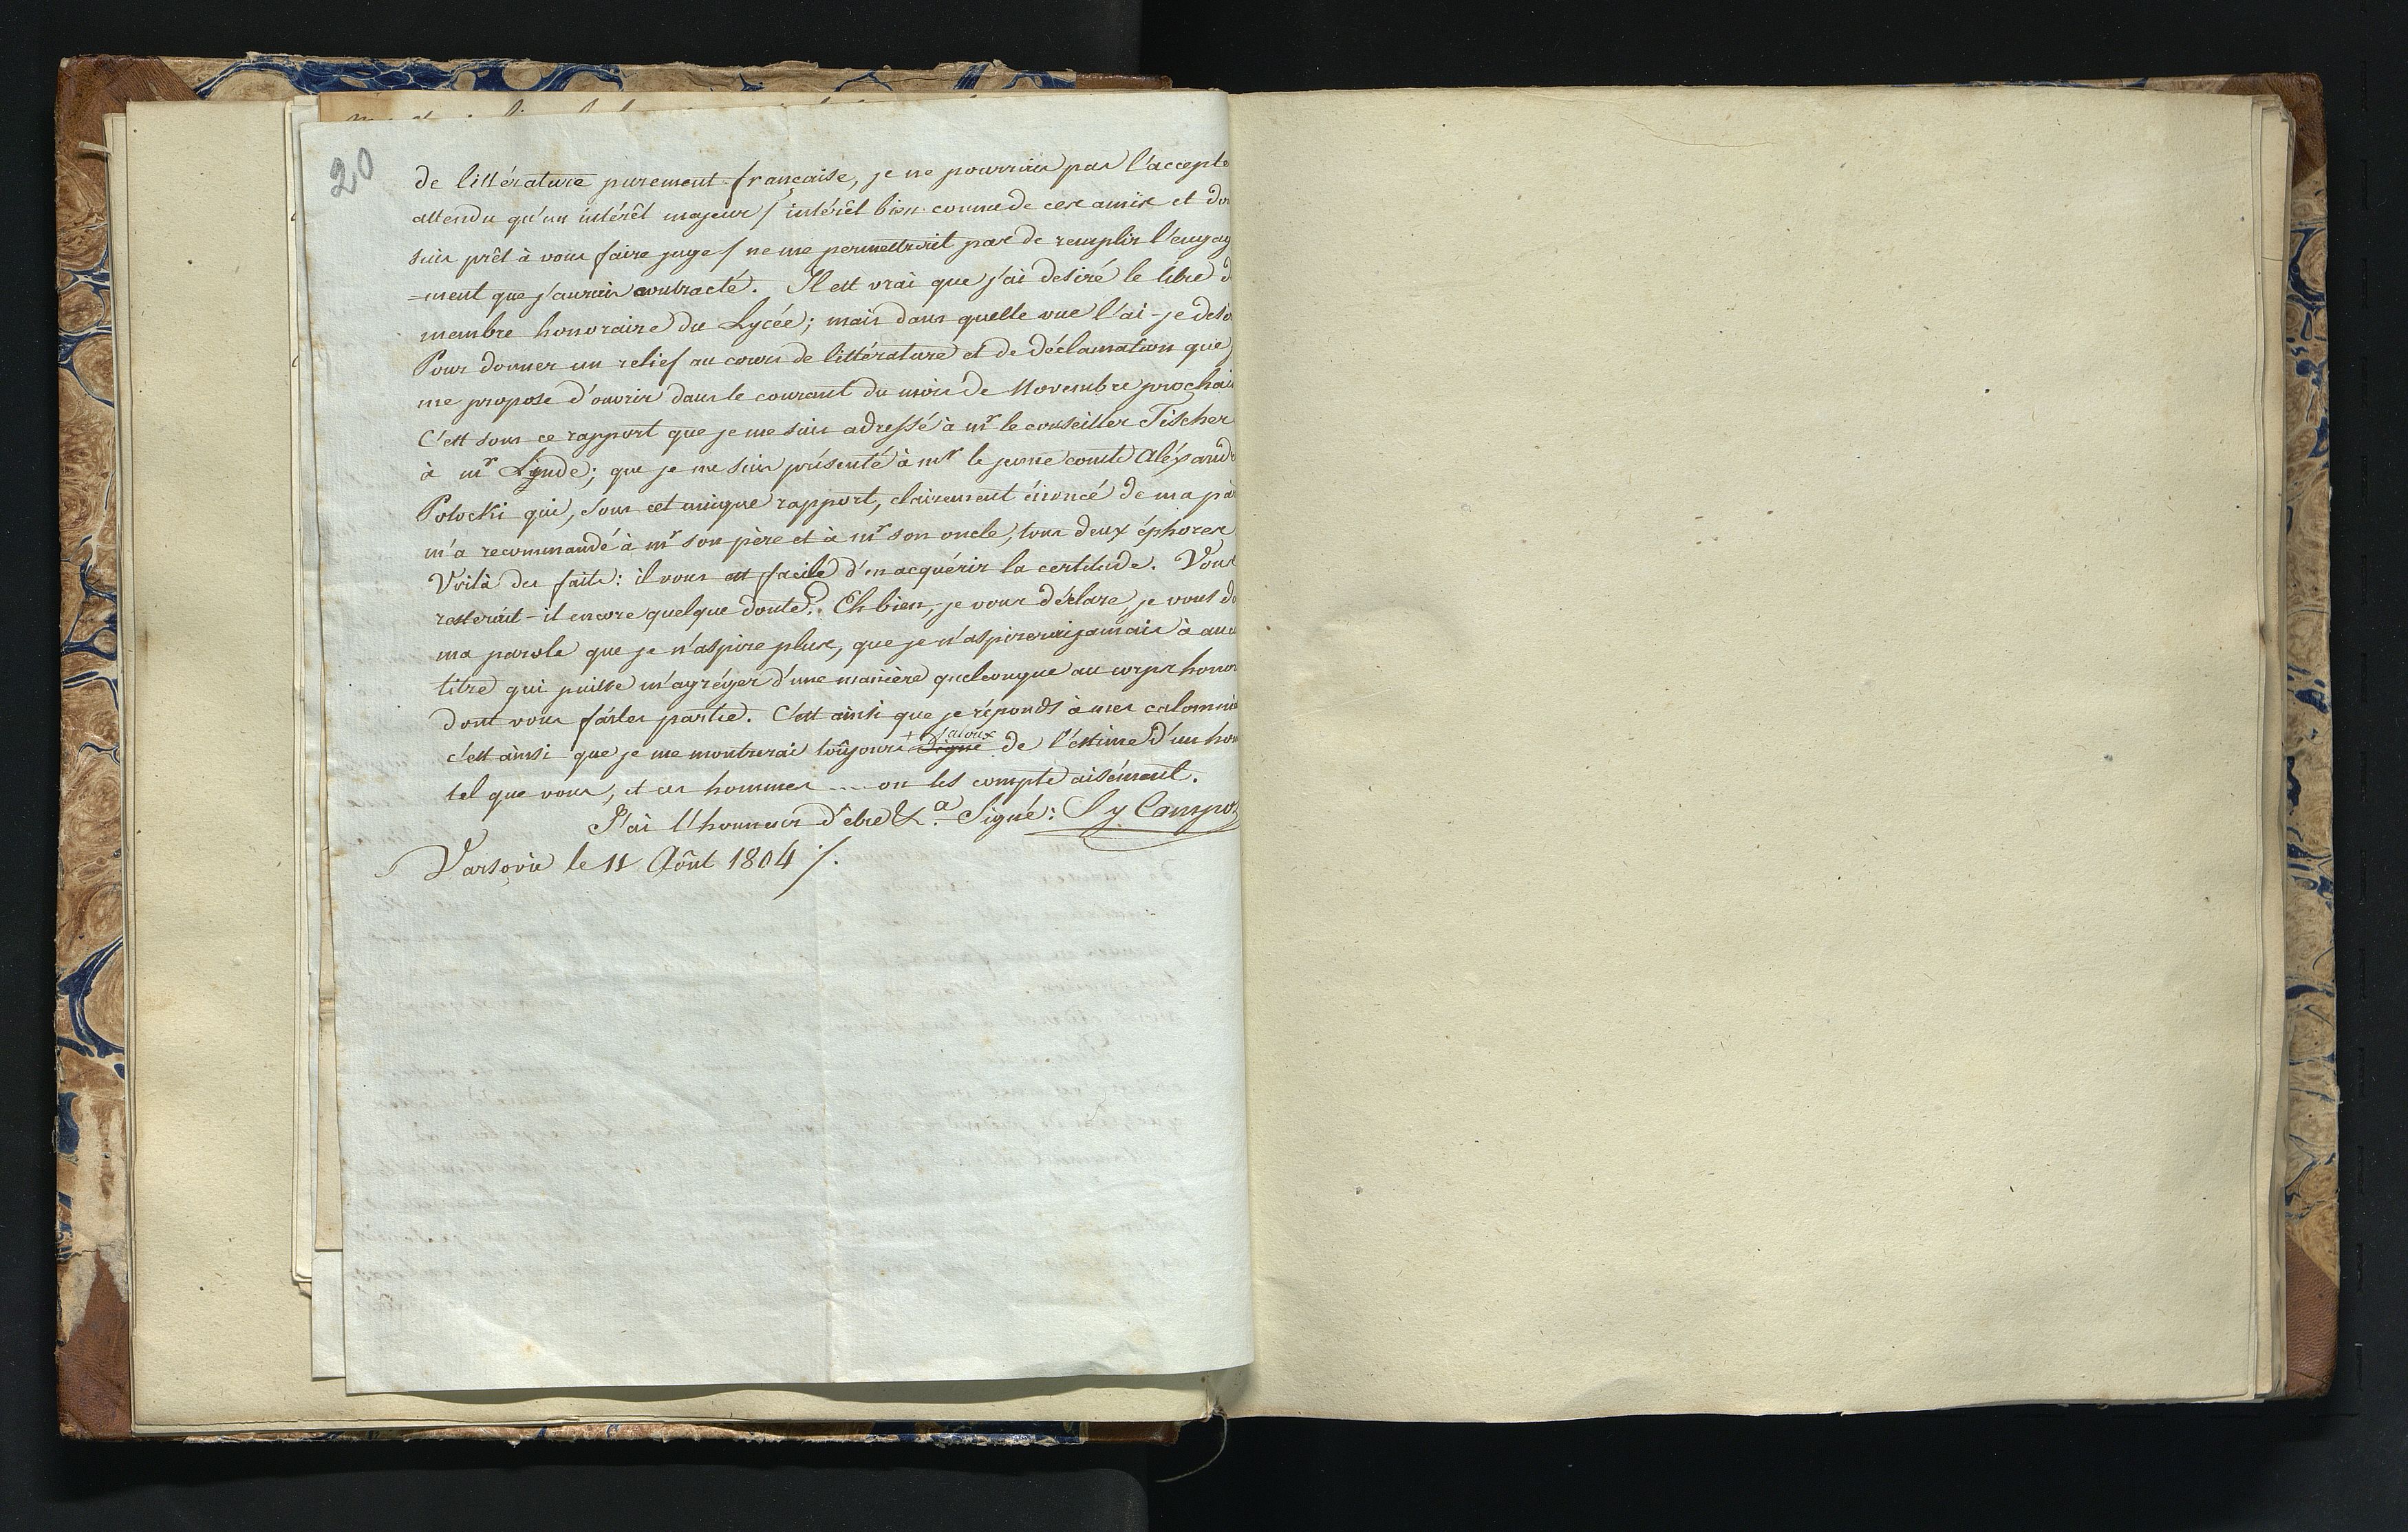 20
de littérature purement française, je ne pourrais pas l'accepte
attendu qu'un intérêt majeur / intérêt bien connu de ces amis et do
suis prêt à vous faire juge / ne me permettroit pas de remplir l'engag
=ment que j'aurais contracté. Il est vrai que j'ai desiré le titre d
membre honoraire du Lycée; mais dans quelle vue l'ai-je desi
Pour donner un relief au cours de littérature et de déclamation que j
me propose d'ouvrir dans le courant du mois de Novembre prochai
C'est sous ce rapport que je me suis adressé à mr le conseiller Fischer
à mr Lynde; que je me suis présenté à mr le jeune comte Aléxandr
Potocki qui, sous cet unique rapport, clairement énoncé de ma pa
m'a recommandé à mr son père et à mr son oncle, tous deux éphores
Voilà des faits: il vous est facile d'en acquérir la certitude. Vous
resteroit-il encore quelque doute? Eh bien, je vous déclare, je vous do
ma parole que je n'aspire plus, que je n'aspirerai jamais à auc
titre qui puisse m'agréger d'une manière quelconque au corps honor
dont vous faites partie. C'est ainsi que je réponds à mes calomni
+ jaloux
c'est ainsi que je me montrerai toujours digne de l'estime d'un hom
tel que vous, et ces hommes .... on les compte aisément.
J'ai l'honneur d'être &.a Signé: Sy Campo
Varsovie le 11 Août 1804 ./.